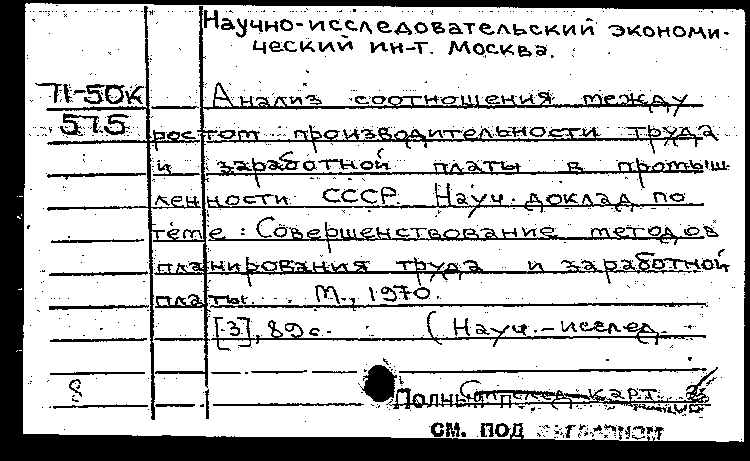 Научно-исследовательский экономи-
ческий ин-т. Москва.
71-50к
575
Анализ соотношения между
ростом производительности труда
и заработной платы в промыш
ленности СССР. Науч. доклад по
теме: Совершенствование методов
планирования труда и заработной
платы. М., 1970.
[3], 89с. (Науч.-исслед.
8
След. карт.
Полный
см. под